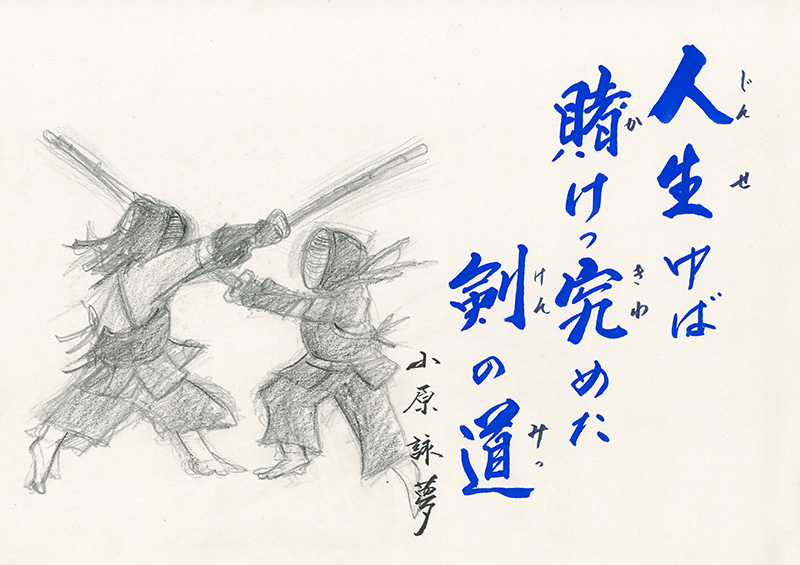 人生ゆば
じん せ
賭けっ究めた
か きわ
剣の道
けん みっ
小原詠夢